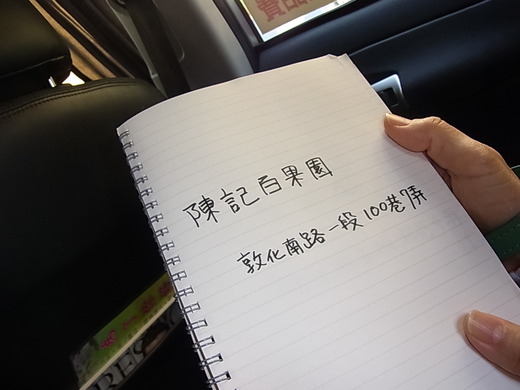 陳記百果園
敦化南路一段100巷7弄
RES